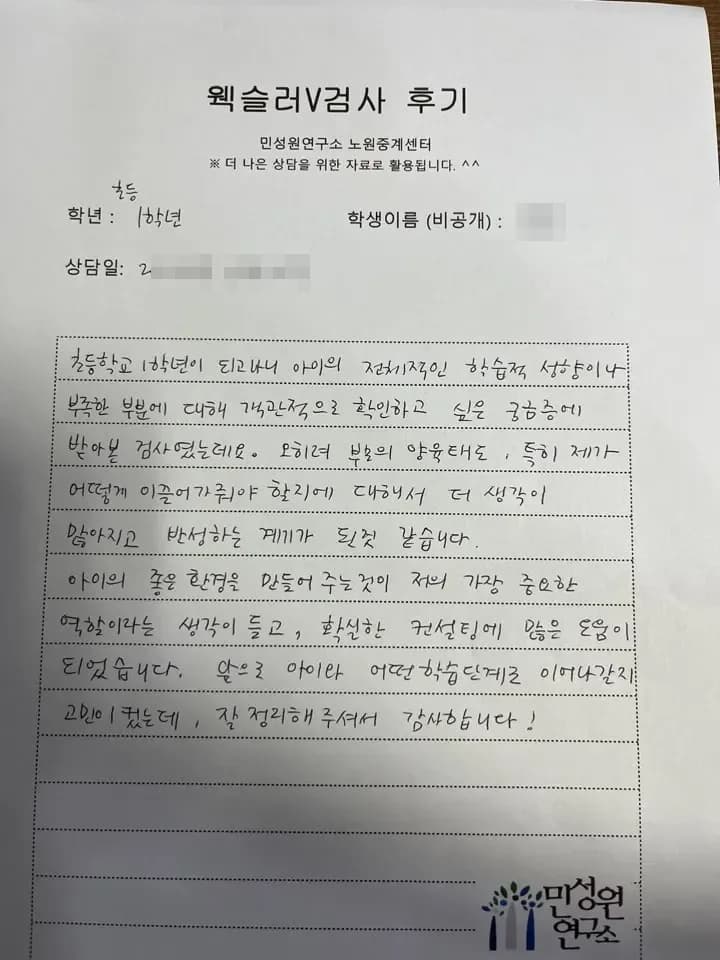 웩슬러V검사 후기
민성원연구소 노원중계센터
※ 더 나은 상담을 위한 자료로 활용됩니다. ^^
초등
학년 : 1학년
학생이름 (비공개) :
상담일: 2
초등학교 1학년이 되고나니 아이의 전체적인 학습적 성향이나
부족한 부분에 대해 객관적으로 확인하고 싶은 궁금증에
받아본 검사였는데요. 오히려 부모의 양육태도, 특히 제가
어떻게 이끌어가줘야 할지에 대해서 더 생각이
많아지고 반성하는 계기가 된것 같습니다.
아이의 좋은 환경을 만들어 주는것이 저의 가장 중요한
역할이라는 생각이 들고, 확실한 컨설팅에 많은 도움이
되었습니다. 앞으로 아이와 어떤 학습단계로 이어나갈지
고민이 컸는데, 잘 정리해 주셔서 감사합니다!
민성원
연구소